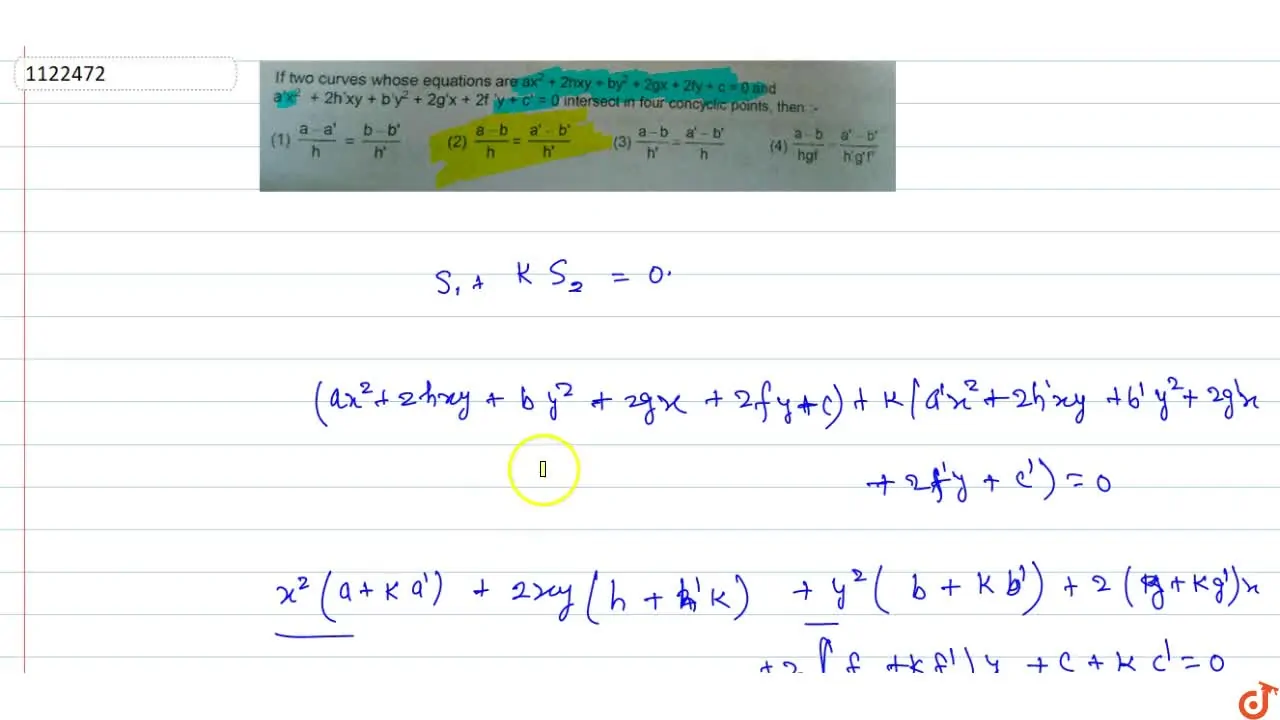 1122472
If two curves whose equations are ax² + 2hxy + by² + 2gx + 2fy + c = 0 and
a'x² + 2h'xy + b'y² + 2g'x + 2f 'y + c' = 0 intersect in four concyclic points, then :-
(1) (a – a')/h = (b – b')/h' (2) (a – b)/h = (a' – b')/h' (3) (a – b)/h' = (a' – b')/h (4) (a – b)/hgf = (a' – b')/h'g'f'
S₁ + K S₂ = 0.
(ax² + 2hxy + by² + 2gx + 2fy + c) + K(a'x² + 2h'xy + b'y² + 2g'x
+ 2f'y + c') = 0
x²(a + K a') + 2xy(h + h'K) + y²(b + K b') + 2(g + Kg')x
+ 2(f + Kf')y + c + K c' = 0